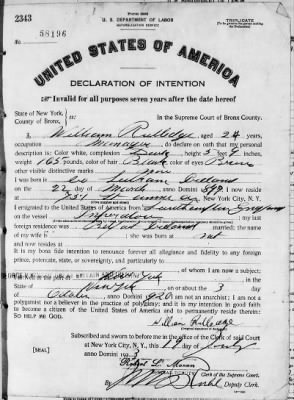 2343
U. S. DEPARTMENT OF LABOR
NATURALIZATION SERVICE
TRIPLICATE
No. 58196
UNITED STATES OF AMERICA
DECLARATION OF INTENTION
Invalid for all purposes seven years after the date hereof
State of New York,
County of Bronx, ss:
In the Supreme Court of Bronx County.
I, William Rutledge, aged 24 years,
occupation Manager, do declare on oath that my personal
description is: Color white, complexion Dark, height 5 feet inches,
weight 165 pounds, color of hair Black color of eyes Brown
other visible distinctive marks none
I was born in Ireland
on the 22 day of March, anno Domini 1899; I now reside
at New York City, N. Y.
I emigrated to the United States of America from Southampton England
on the vessel Imperator; my last
foreign residence was Ireland married; the name
of my wife is; she was born at
and now resides at
It is my bona fide intention to renounce forever all allegiance and fidelity to any foreign
prince, potentate, state, or sovereignty, and particularly to
of whom I am now a subject;
I arrived at the port of New York, in the
State of New York, on or about the 3 day
of October, anno Domini 1920; I am not an anarchist; I am not a
polygamist nor a believer in the practice of polygamy; and it is my intention in good faith
to become a citizen of the United States of America and to permanently reside therein:
SO HELP ME GOD.
William Rutledge
Subscribed and sworn to before me in the office of the Clerk of said Court
at New York City, N. Y., this 19 day of July
[SEAL]
anno Domini 1923
Robert L. Moran
Clerk of the Supreme Court.
By Deputy Clerk.